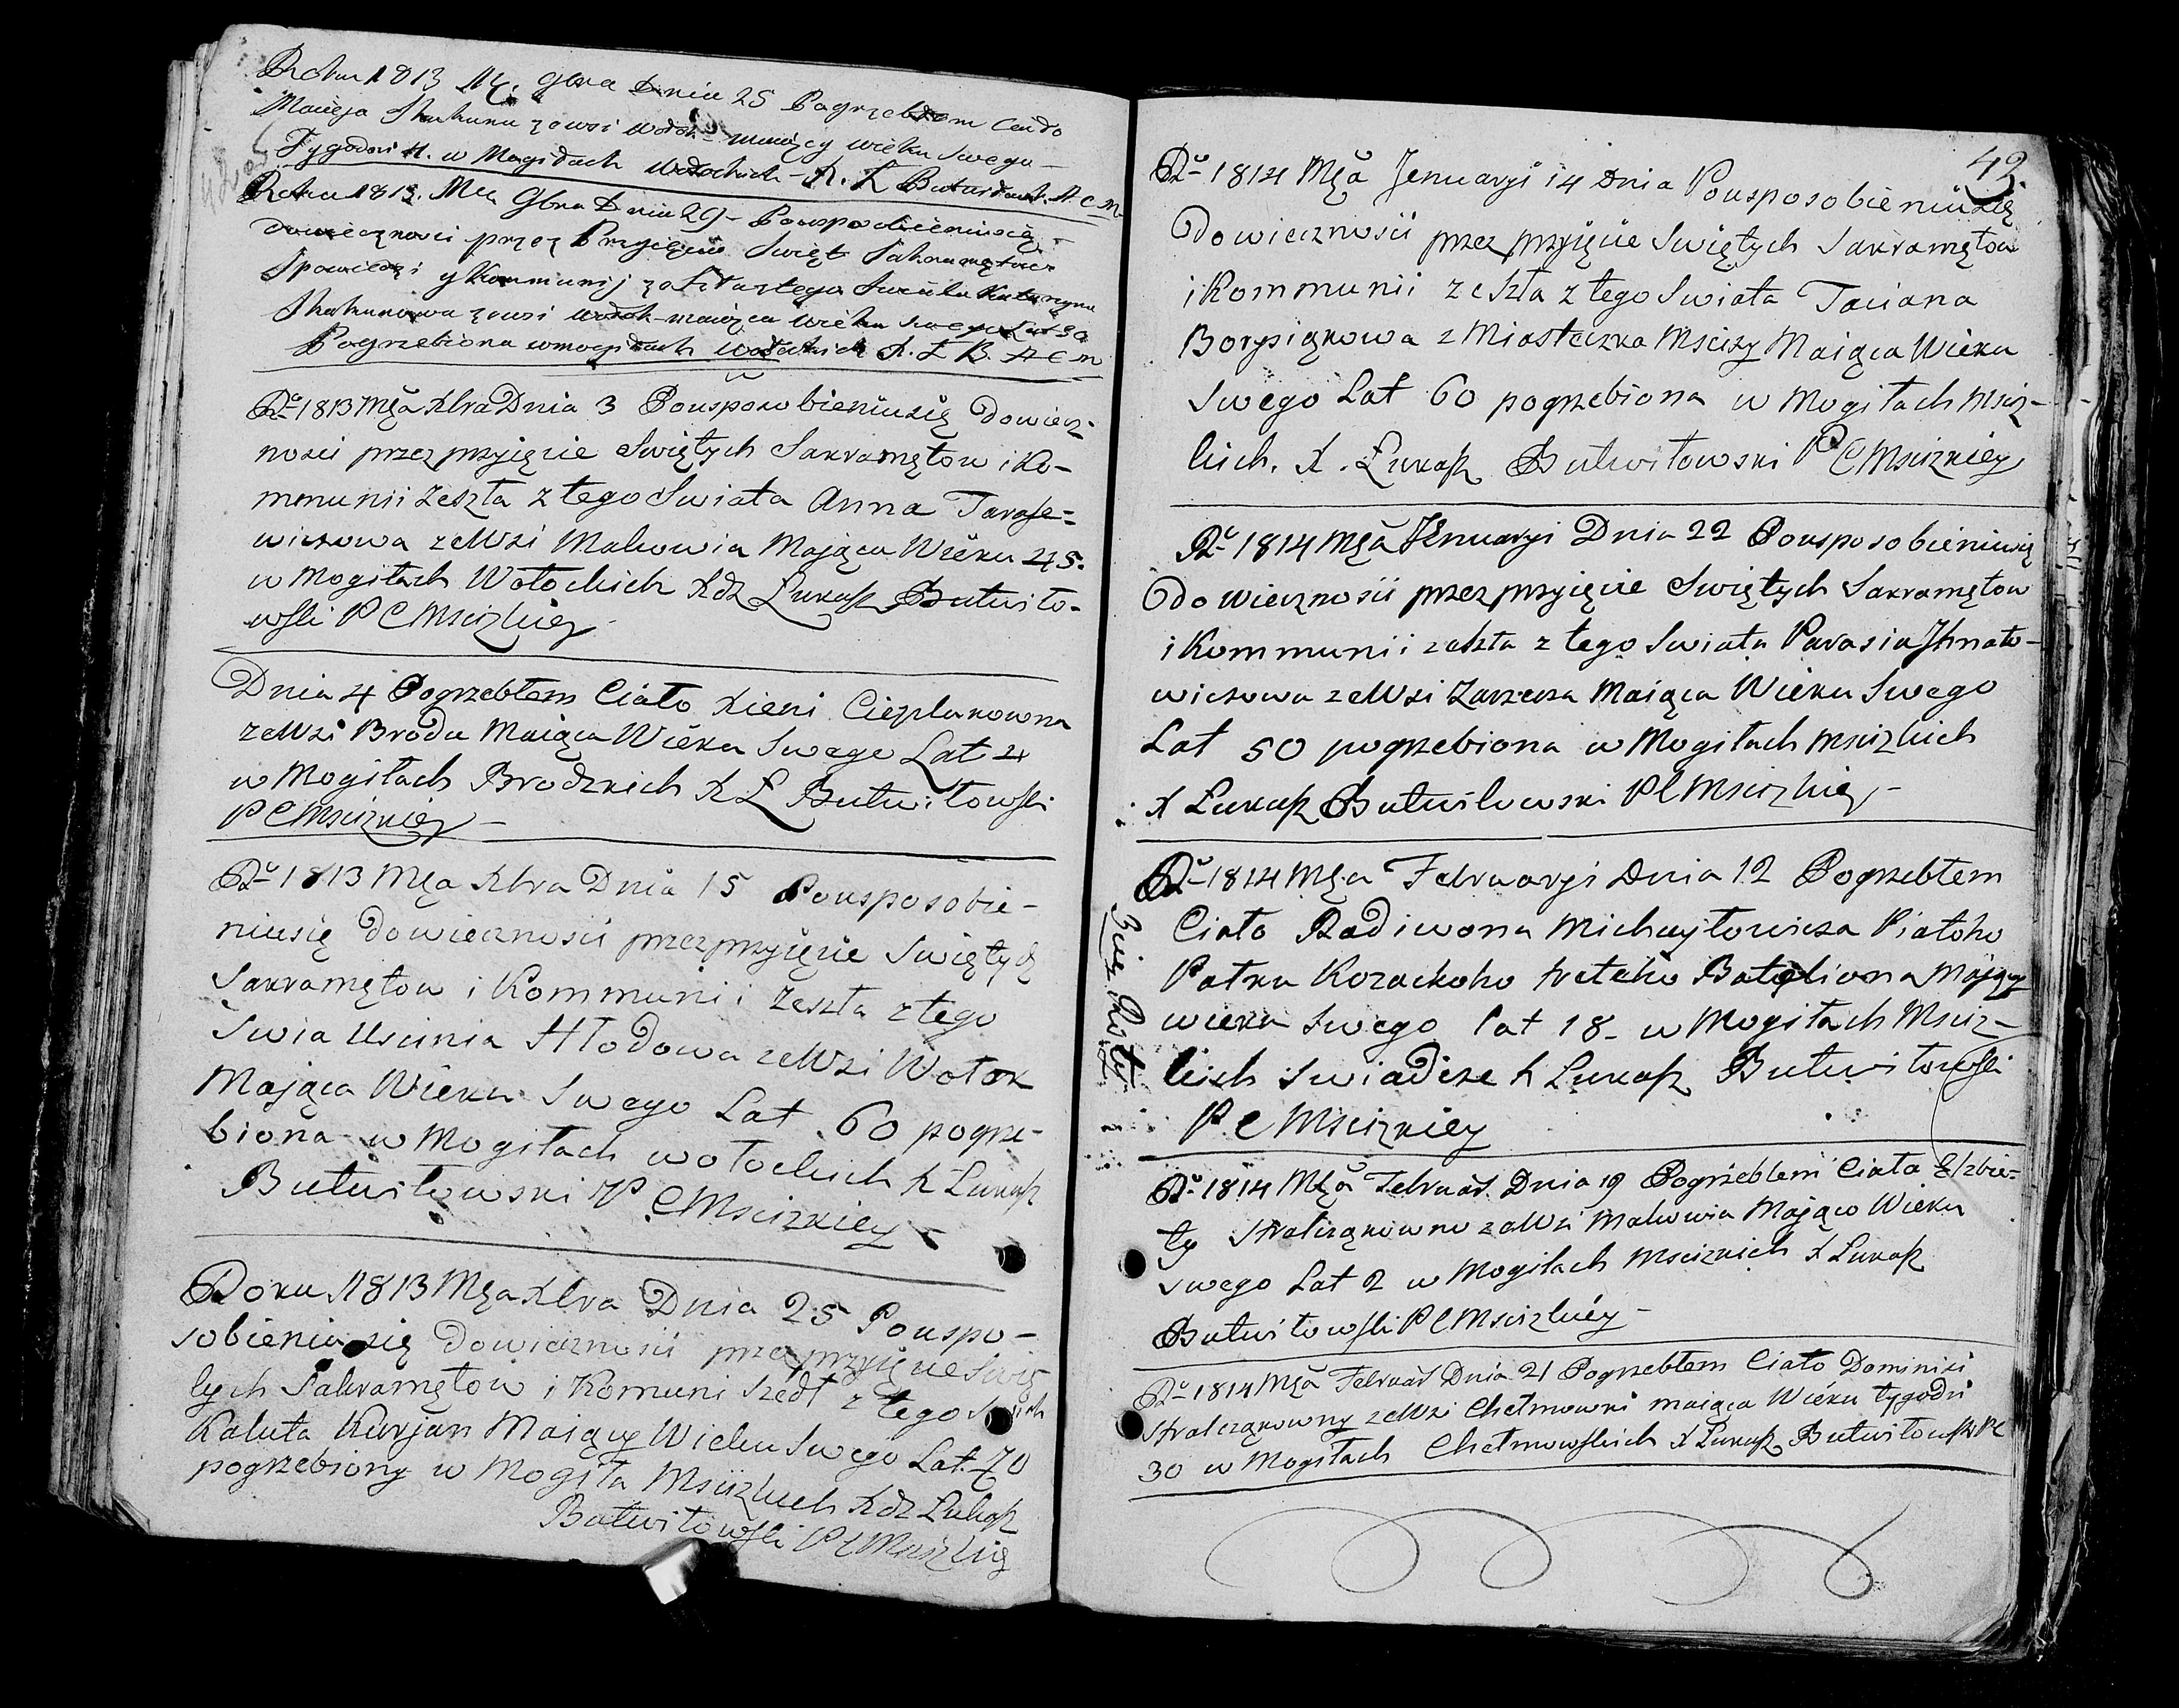 Roku 1813 M. 9bra Dnia 25 Pogrzebłem Ciało
Macieja Skakuna zewsi Wołok maiący wieku swego
Tygodni 4. w Mogiłach Wołockich
Roku 1813. Mca 9bra Dnia 29 Pouspo
dowieczności przez Przyięcie Swięt Sakramętow
Spowiedzi y Kommunij zeszła z tego Swiata Katarzyna
Skakunowa zewsi Wołok maiąca wieku swego Lat 30
Pogrzebiona w mogiłach Wołockich X. Ł B.
Ru 1813 Mça Xbra Dnia 3 Pousposobieniusię dowiecz-
ności przez przyięcie Swiętych Sakramętow i Ko-
mmunii Zeszła z tego Swiata Anna Tarase-
wiczowa zeWsi Makowia Mająca Wieku 45.
w Mogiłach Wołockich Xdz Łukasz Butwiło-
wski P C Mscizkiey
Dnia 4 Pogrzebłem Ciało Xieni Cieplakowna
zeWsi Brodu Maiąca Wieku Swego Lat 4
w Mogiłach Brodzkich X Ł Butwiłowski
P C Mscizkiey
Ru 1813 Mça Xbra Dnia 15 Pousposobie-
niusię dowieczności przez przyięcie Swiętych
Sakramętow i Kommunii Zeszła z tego
Swia Uscinia Hłodowa zeWsi Wołok
Mająca Wieku Swego Lat 60 pogrze-
biona w Mogiłach wołockich X Łukasz
Butwiłowski P C Mscizkiey
Roku 1813 Mça Xbra Dnia 25 Pouspo-
sobieniusię dowieczności przez przyięcie Swię
tych Sakramętow i Komuni szedł z tego
Kaluta Kurjan Maiący Wieku Swego Lat 70
pogrzebiony w Mogiła Mscizkich Xdz Łukasz
Butwiłowski P C Mscizkiey
42.
Ru 1814 Mça Jenuaryi 14 Dnia Pousposobieniusię
Do wiecznosii przez przyięcie Swiętych Sakramętow
i Kommunii zeszła z tego Swiata Taciana
Borysiąkowa z Miasteczka Mscizy Maiąca Wieku
Swego Lat 60 pogrzebiona w Mogiłach Msciz-
kich. X. Łukasz Butwiłowski P C Mscizkiey
Ru 1814 Mça Jenuaryi Dnia 22 Pousposobieniusię
Do wiecznosii przez przyięcie Swiętych Sakramętow
i Kommunii zeszła z tego Swiata Parasia Ihnato-
wiczowa zeWsi Zarzecza Maiąca Wieku Swego
Lat 50 pogrzebiona w Mogiłach Mscizkich
X Łukasz Butwiłowski P C Mscizkiey
Ru 1814 Mça Februaryi Dnia 12 Pogrzebłem
Ciało Radiwona Michayłowicza Piatoho
Połku Kozackoho treteho Bataliona Mający
wieku Swego lat 18 w Mogiłach Msciz-
kich Swiadcze X Łukasz Butwiłowski
P C Mscizkiey
Ru 1814 Mça Februar Dnia 19 Pogrzebłem Ciała Elzbie-
ty Stralcząkowno zeWsi Makowia Mająco Wieku
Swego Lat 2 w Mogiłach Mscizkich X Łukasz
Butwiłowski P C Mscizkiey
Ru 1814 Mça Februar Dnia 21 Pogrzebłem Ciało Dominici
Stralcząkowny zeWsi Chełmowki maiąca Wieku tygodni
30 w Mogiłach Chełmowskich X Łukasz Butwiłowski P C